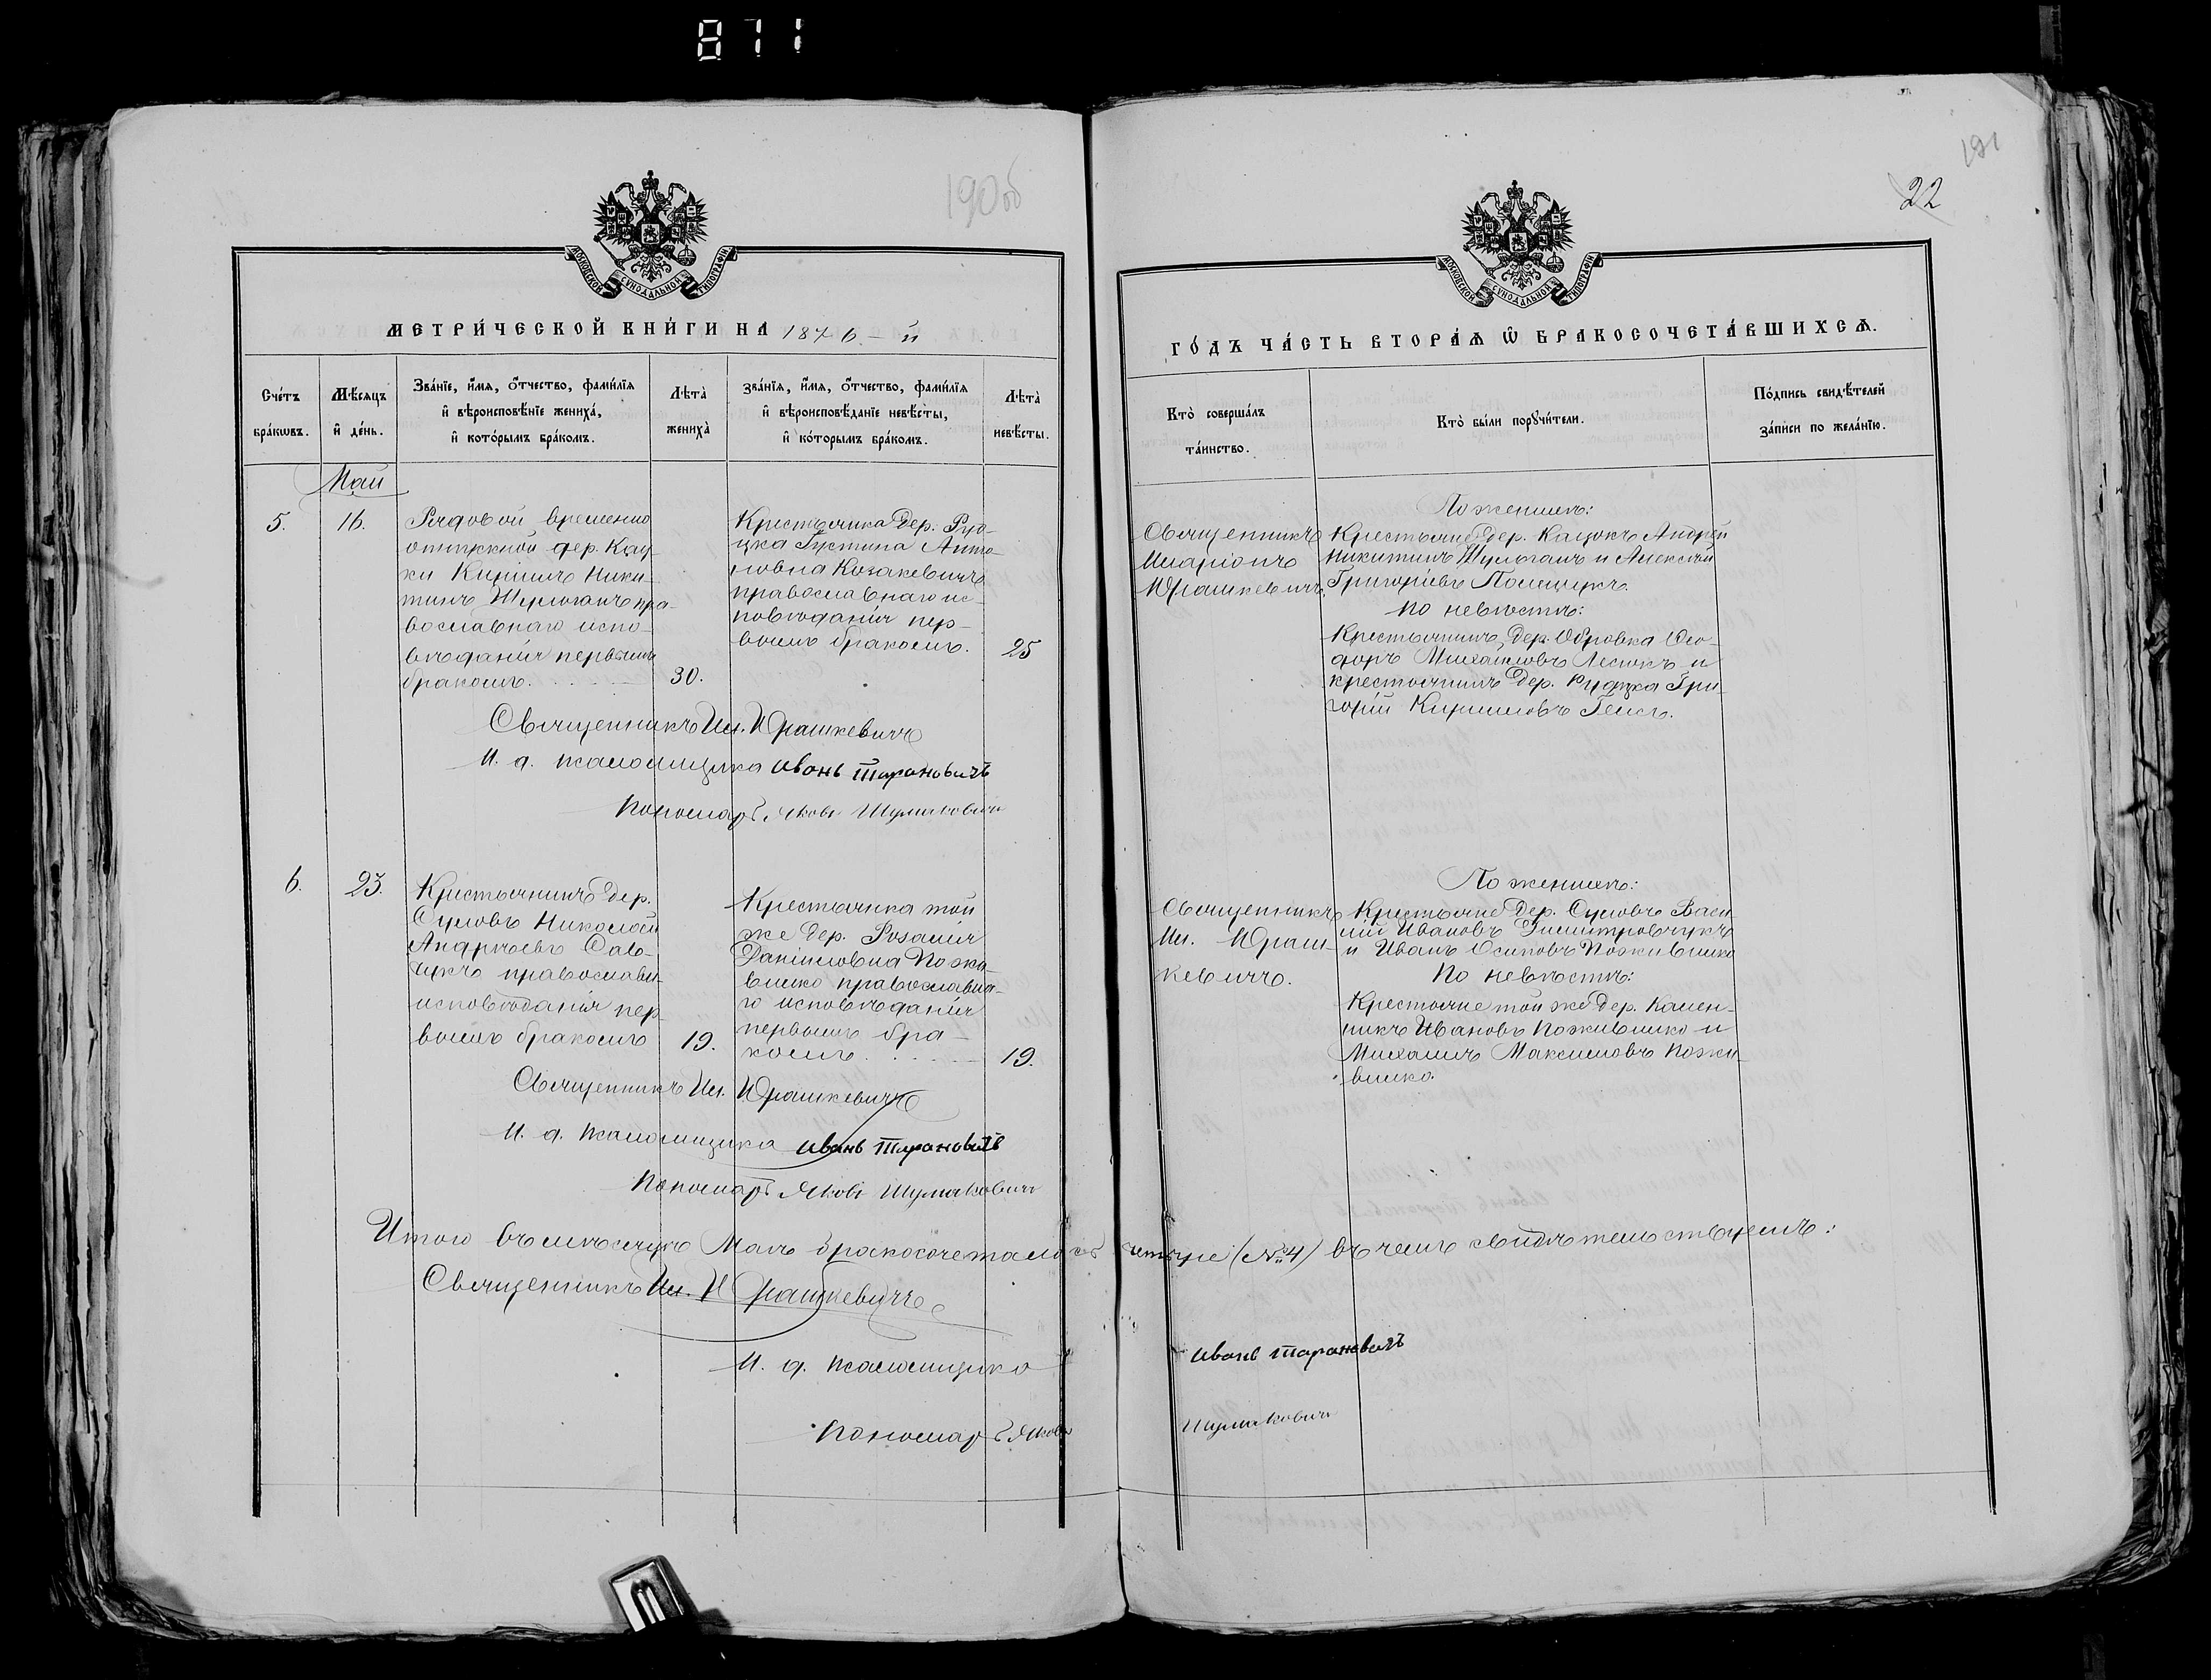 871
190об
191
22
МОСКОВСКОЙ СУНОДАЛЬНОЙ ТИПОГРАФІИ
МОСКОВСКОЙ СУНОДАЛЬНОЙ ТИПОГРАФІИ
МЕТРИ́ЧЕСКОЙ КНИ́ГИ НА 1876-й
ГО́ДЪ ЧА́СТЬ ВТОРА́Ѧ Ѿ БРАКОСОЧЕТА́ВШИХСѦ.
Сче́тъ бра́кѡвъ.
Мѣ́сяцъ и҆ де́нь.
Зва́нїе, и҆́мя, ѻ҆́тчество, фами́лїя
и҆ вѣроисповѣ́нїе жениха́,
и҆ кото́рымъ бра́комъ.
Лѣта̀ жениха̀
зва́нїя, и҆́мя, ѻ҆́тчество, фами́лїя
и҆ вѣроисповѣ́данїе невѣ́сты,
и҆ ко́торымъ бра́комъ.
Лѣта̀ невѣ́сты.
Кто̀ соверша́лъ та́инство.
Кто̀ бы́ли порꙋчи́тели.
По́дпись свидѣ́телей
за́писи по жела́нїю.
Май
5.
16.
Рядовой временно
отпускной дер. Кац-
ки Кирилъ Ники-
тинъ Шульганъ пра-
вославнаго испо-
вѣданія первымъ
бракомъ.
30.
Крестьянка дер. Руд-
цка Густина Анто-
новна Козакевичъ
православнаго ис-
повѣданія пер-
вымъ бракомъ.
25
Священникъ
Иларіонъ
Юрашкевичъ.
По женихѣ:
Крестьяне дер. Кацокъ Андрей
Никитинъ Шульганъ и Алексѣй
Григоріевъ Полищукъ.
По невѣстѣ:
Крестьянинъ дер. Обровка Ѳео-
доръ Михайловъ Лесюкъ и
крестьянинъ дер. Рудзка Гри-
горій Кириловъ
Священникъ Ил. Юрашкевичъ
И. д. псаломщика Иванъ Тарановичъ
Пономарь Яковъ Шумаковичъ
6.
23.
Крестьянинъ дер.
Николай
Андреевъ Сав-
чукъ православн.
исповѣданія пер
вымъ бракомъ
19.
Крестьянка той
же дер. Розалія
Даніиловна Пожи-
вилко православна-
го исповѣданія
первымъ бра-
комъ.
19.
Священникъ
Ил. Юраш-
кевичъ.
По женихѣ:
Крестьяне дер. Васи-
лій Ивановъ Димитровчукъ
и Иванъ Осиповъ Поживилко
По невѣстѣ:
Крестьяне той же дер. Кален-
никъ Ивановъ Поживилко и
Михаилъ Максимовъ Пожи
вилко.
Священникъ Ил. Юрашкевичъ
И. д. псаломщика Иванъ Тарановичъ
Пономарь Яковъ Шумаковичъ
Итого въ мѣсяцѣ Маѣ бракосочеталось четыре (№ 4) въ чемъ свидѣтельствуемъ:
Священникъ Ил. Юрашкевичъ
И. д. псаломщика Иванъ Тарановичъ
Пономарь Яковъ Шумаковичъ